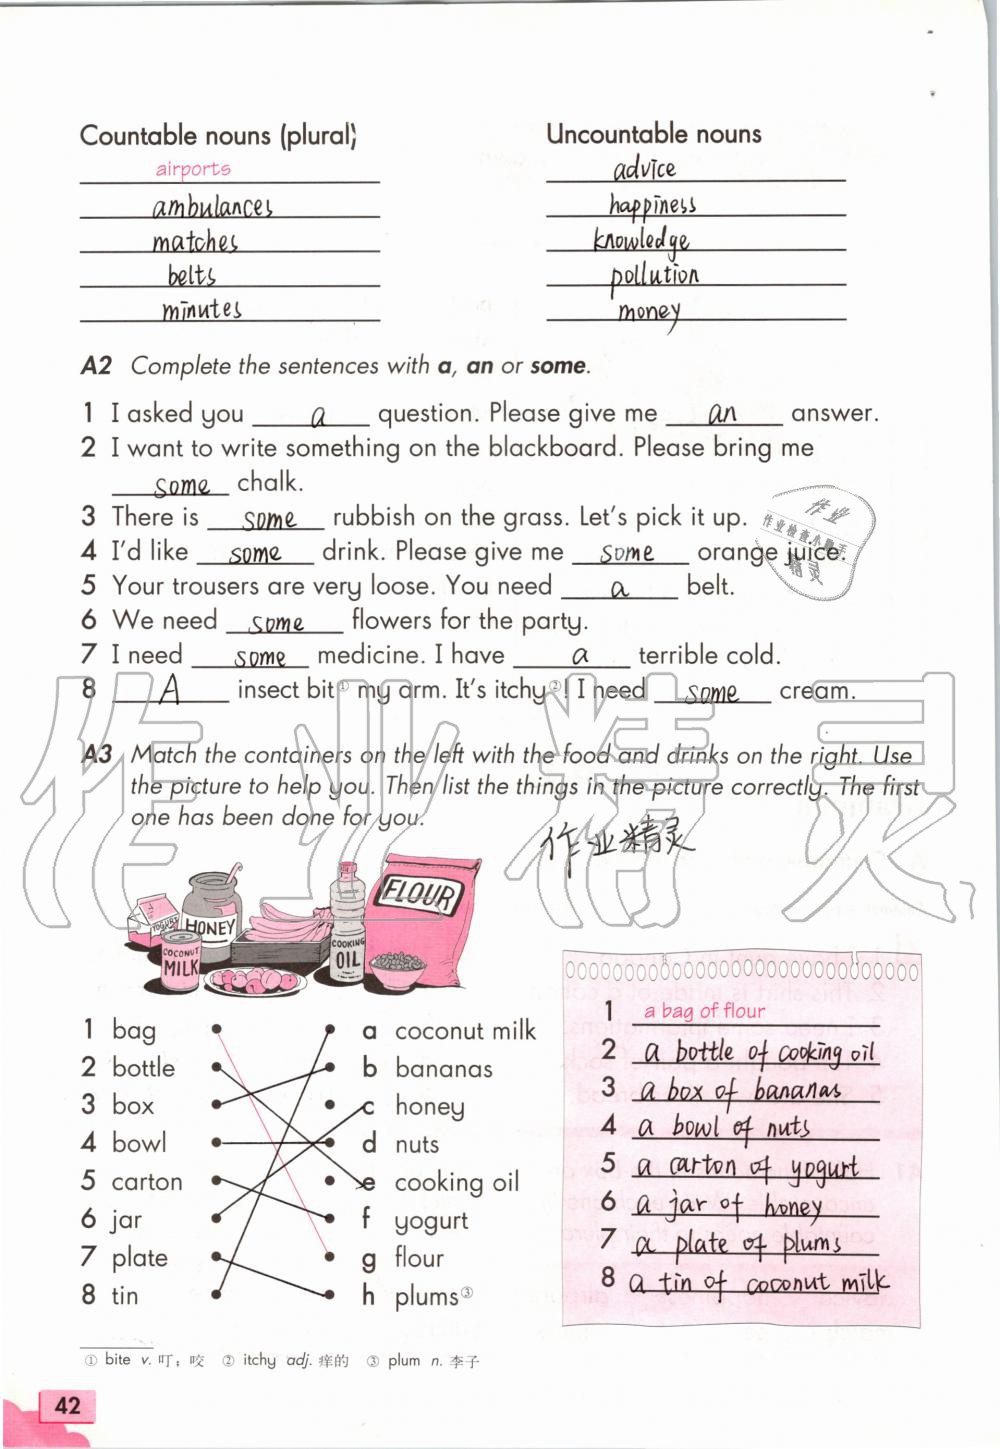 Countable nouns (plural)
Uncountable nouns
airports
advice
ambulances
happiness
matches
knowledge
belts
pollution
minutes
money
A2 Complete the sentences with a, an or some.
1 I asked you a question. Please give me an answer.
2 I want to write something on the blackboard. Please bring me
some chalk.
3 There is some rubbish on the grass. Let's pick it up.
4 I'd like some drink. Please give me some orange juice.
5 Your trousers are very loose. You need a belt.
6 We need some flowers for the party.
7 I need some medicine. I have a terrible cold.
8 A insect bit① my arm. It's itchy②! I need some cream.
作业
作业检查小助手
精灵
A3 Match the containers on the left with the food and drinks on the right. Use
the picture to help you. Then list the things in the picture correctly. The first
one has been done for you.
作业精灵
作业精灵
YOGURT
HONEY
COCONUT
MILK
COOKING
OIL
FLOUR
1 bag
2 bottle
3 box
4 bowl
5 carton
6 jar
7 plate
8 tin
a coconut milk
b bananas
c honey
d nuts
e cooking oil
f yogurt
g flour
h plums③
1 a bag of flour
2 a bottle of cooking oil
3 a box of bananas
4 a bowl of nuts
5 a carton of yogurt
6 a jar of honey
7 a plate of plums
8 a tin of coconut milk
① bite v. 叮；咬 ② itchy adj. 痒的 ③ plum n. 李子
42